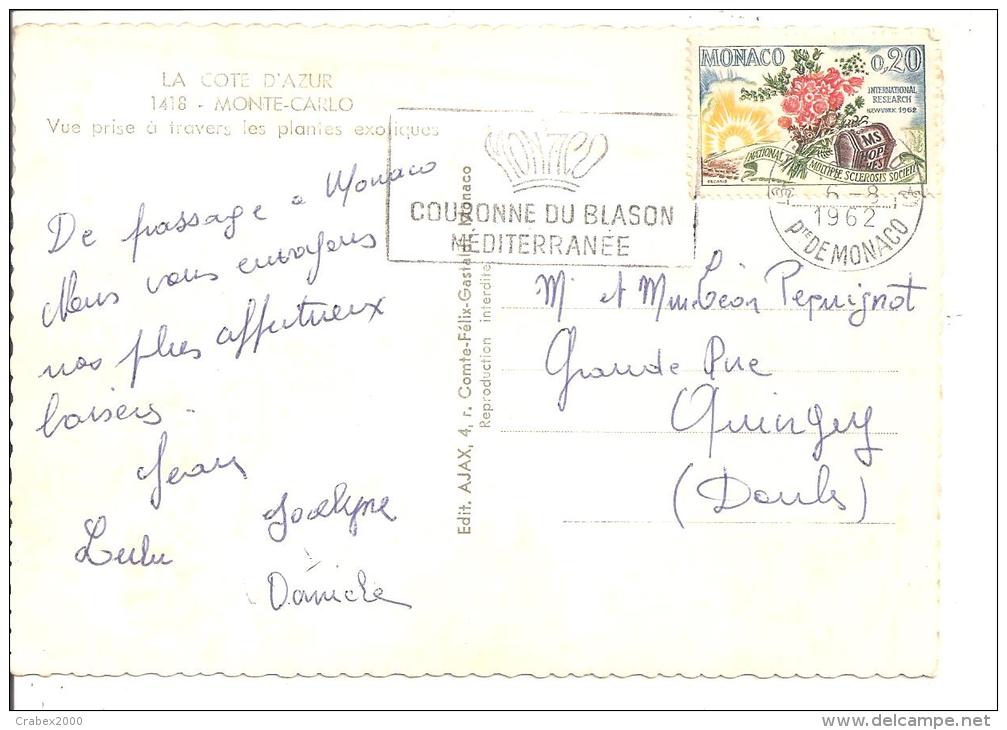 LA COTE D'AZUR
1418 - MONTE-CARLO
Vue prise à travers les plantes exotiques
De passage à Monaco
Nous vous envoyons
nos plus affectueux
baisers.
Jean
Jocelyne
Lulu
Danièle
Edit. AJAX, 4, r. Comte-Félix-Gastaldi, Monaco
Reproduction interdite
MONACO
COURONNE DU BLASON
MEDITERRANÉE
MONACO 0,20
INTERNATIONAL
RESEARCH
NEW YORK 1962
MS
HOPE
CHEST
NATIONAL MULTIPLE SCLEROSIS SOCIETY
6-8
1962
PTE DE MONACO
Mr et Mme Léon Pequignot
Grande Rue
Quingey
(Doubs)
Crabex2000
www.delcampe.net